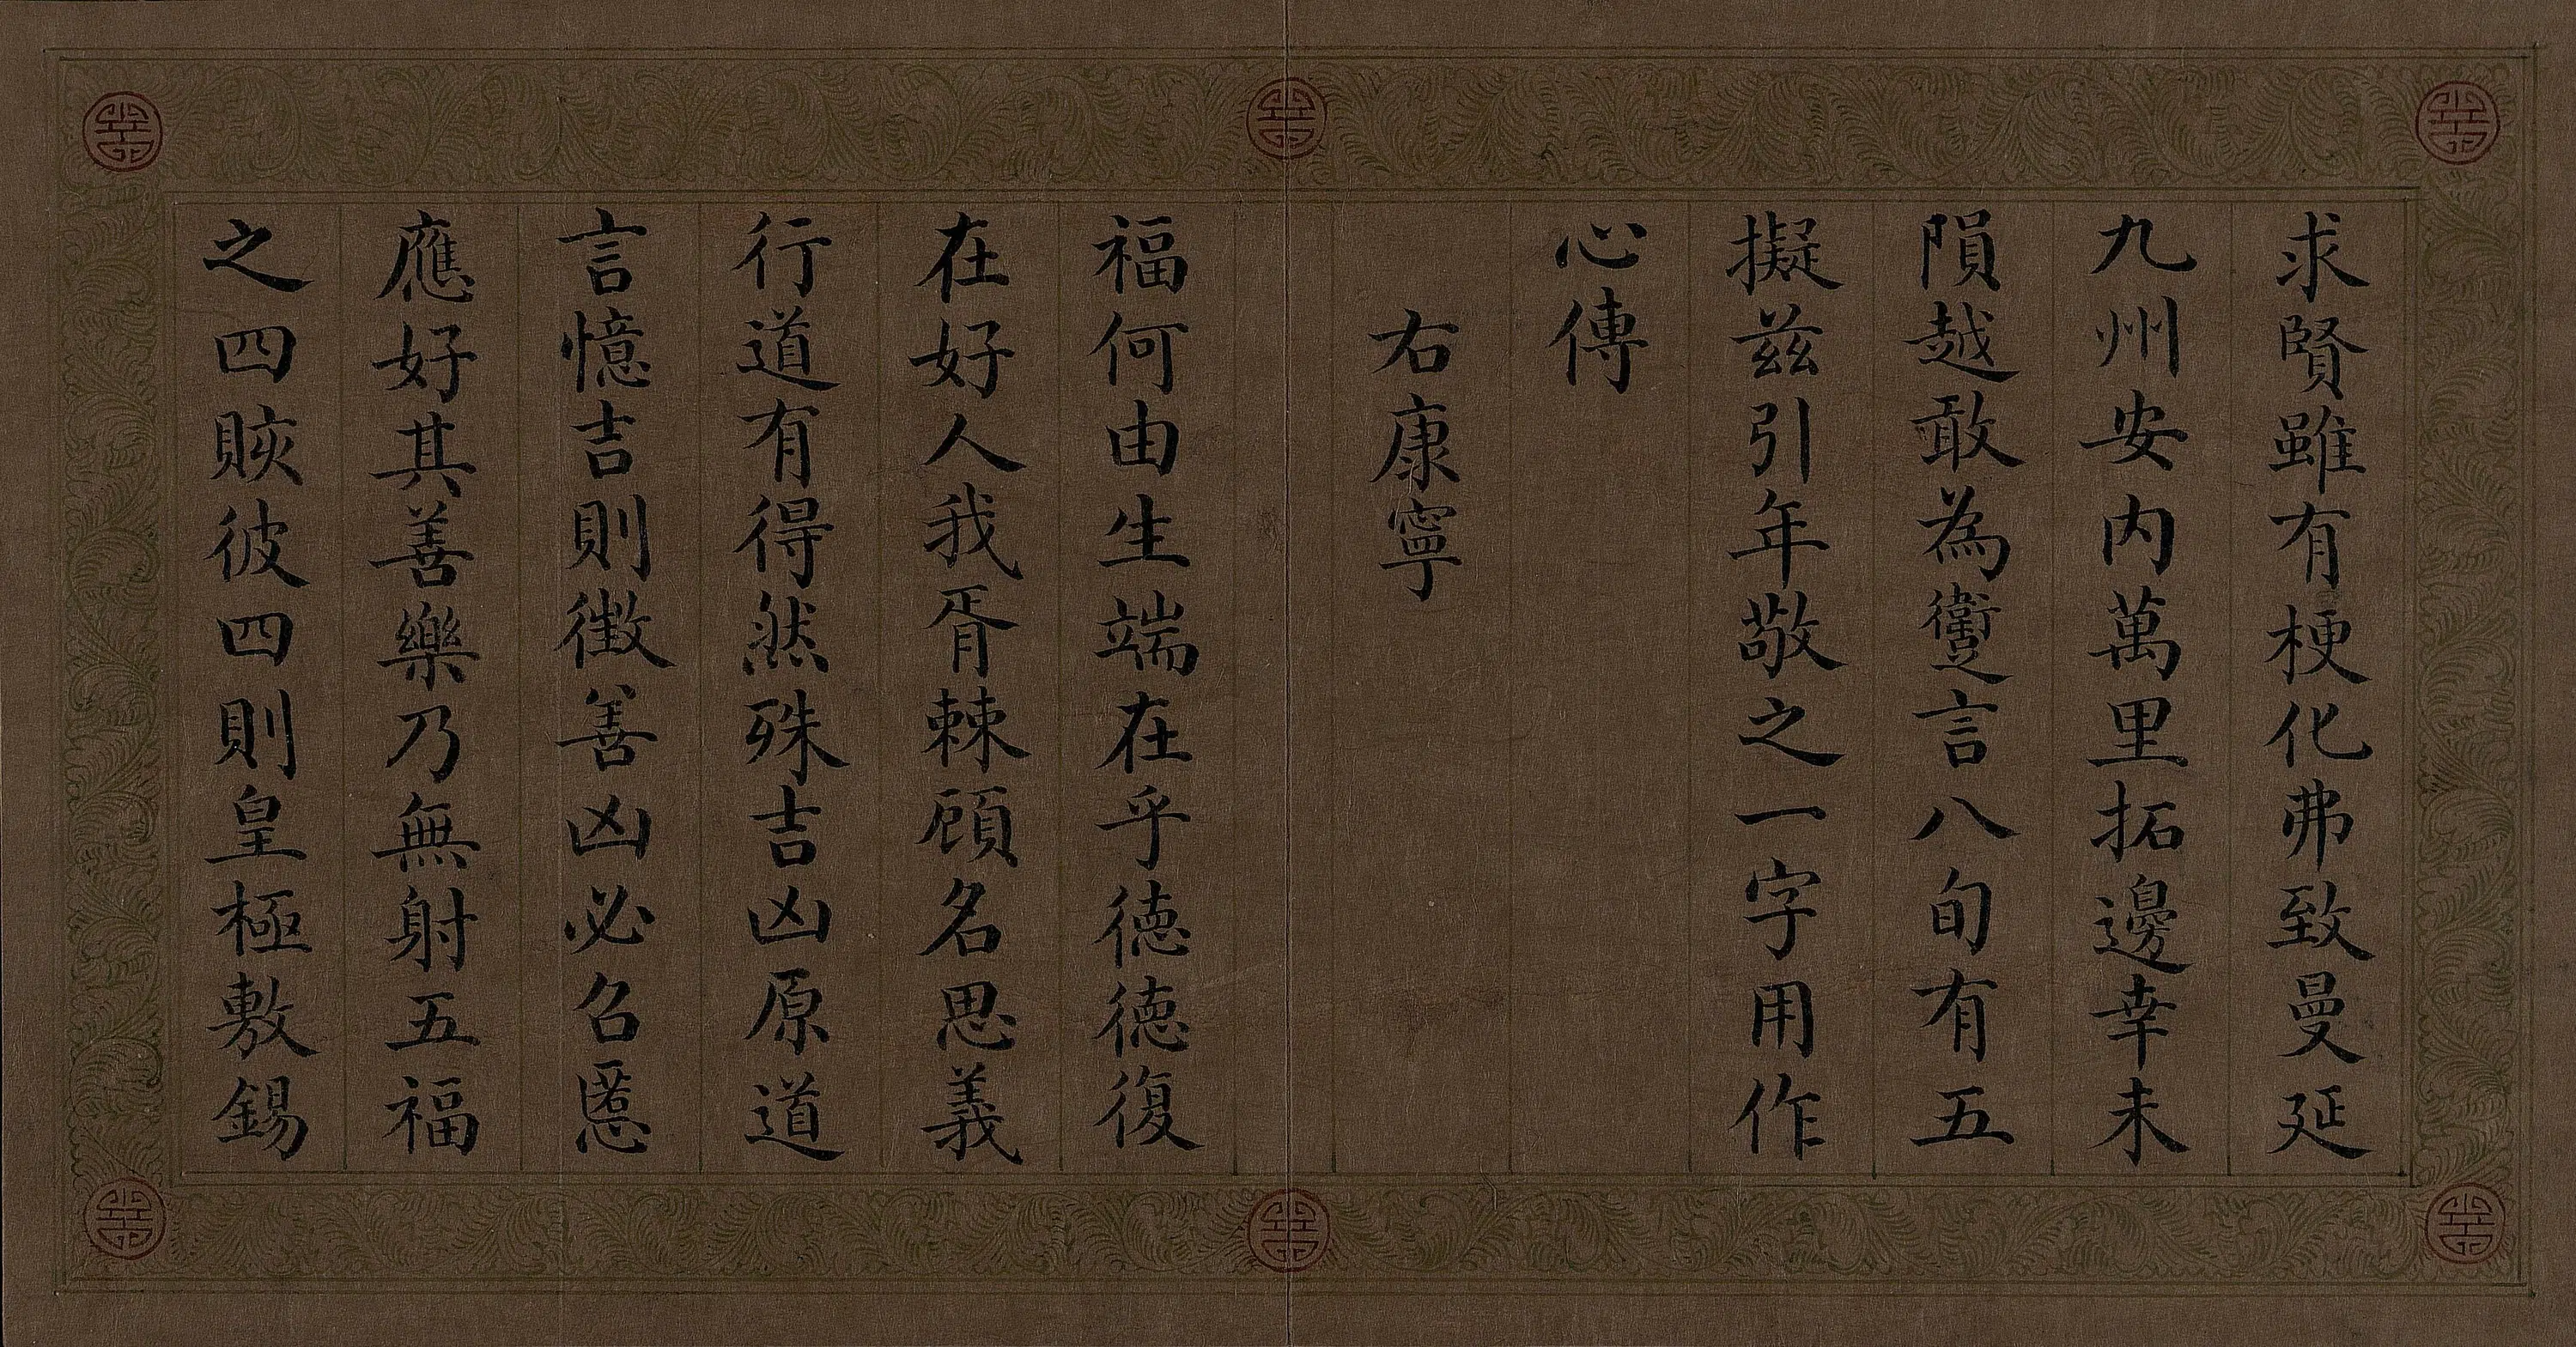 求賢雖有梗化弗致曼延
九州安内萬里拓邊幸未
隕越敢為躗言八旬有五
擬茲引年敬之一字用作
心傳
右康寧
福何由生端在乎德德復
在好人我胥棘顧名思義
行道有得然殊吉凶原道
言憶吉則徵善凶必召慝
應好其善樂乃無射五福
之四賅彼四則皇極敷錫